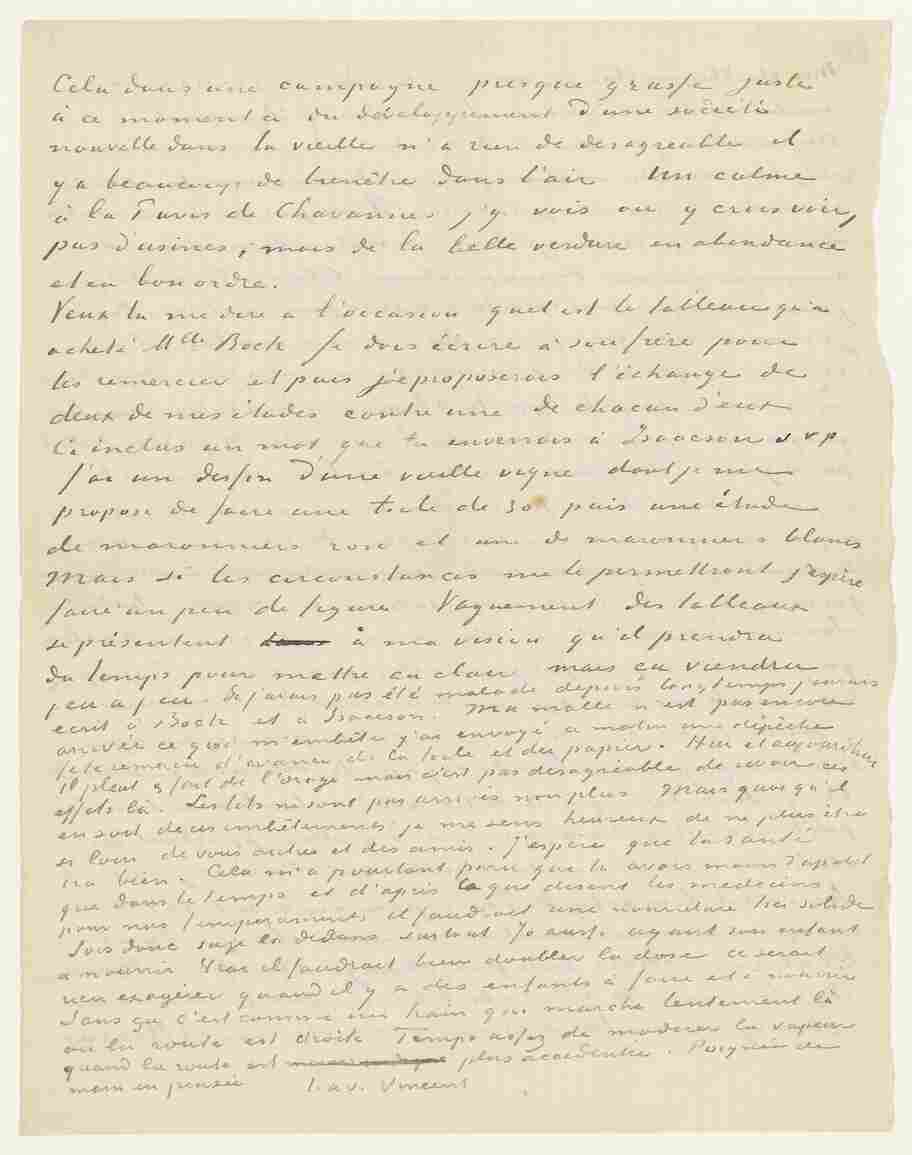 Cela dans une campagne presque grasse juste
à ce moment ci du développement d'une société
nouvelle dans la vieille n'a rien de désagreable il
y a beaucoup de bienêtre dans l'air Un calme
à la Puvis de Chavannes j'y vois ou y crois voir,
pas d'usines, mais de la belle verdure en abondance
et en bon ordre.
Veux tu me dire a l'occasion quel est le tableau qu'a
acheté Mlle Bock Je dois écrire à son frère pour
les remercier et puis je proposerais l'échange de
deux de mes études contre une de chacun d'eux
Ci inclus un mot que tu enverrais à Isaacson s v p
J'ai un dessin d'une vieille vigne dont je me
propose de faire une toile de 30 puis une étude
de maronniers rose et une de maronniers blancs
Mais si les circonstances me le permettront j'espère
faire un peu de figure Vaguement des tableaux
se présentent à ma vision qu'il prendra
du temps pour mettre au clair mais ca viendra
peu a peu. Si j'avais pas été malade depuis longtemps j'aurais
ecrit à Bock et à Isaacson. Ma malle n'est pas encore
arrivée ce qui m'embête j'ai envoyé ce matin une dépêche
 d'avance de la toile et du papier. Hier et aujourdhui
il pleut & fait de l'orage mais c'est pas désagréable de revoir ces
effets là. Les lits ne sont pas arrivés non plus Mais quoi qu'il
en soit de ces embêtements je me sens heureux de ne plus être
si loin de vous autres et des amis. J'espère que ta santé
ira bien. Cela m'a pourtant paru que tu avais moins d'apetit
que dans le temps et d'après ce que disent les medecins
pour nos tempéraments il faudrait une nourriture très solide
Sois donc sage là dedans surtout Jo aussi ayant son enfant
a nourrir Vrai il faudrait bien doubler la dose ce serait
rien exagérer quand il y a des enfants à faire et à nourrir
Sans ça c'est comme un train qui marche lentement là
ou la route est droite Temps assez de moderer la vapeur
quand la route est plus accidentée. Poignée de
main en pensée t. à. v. Vincent